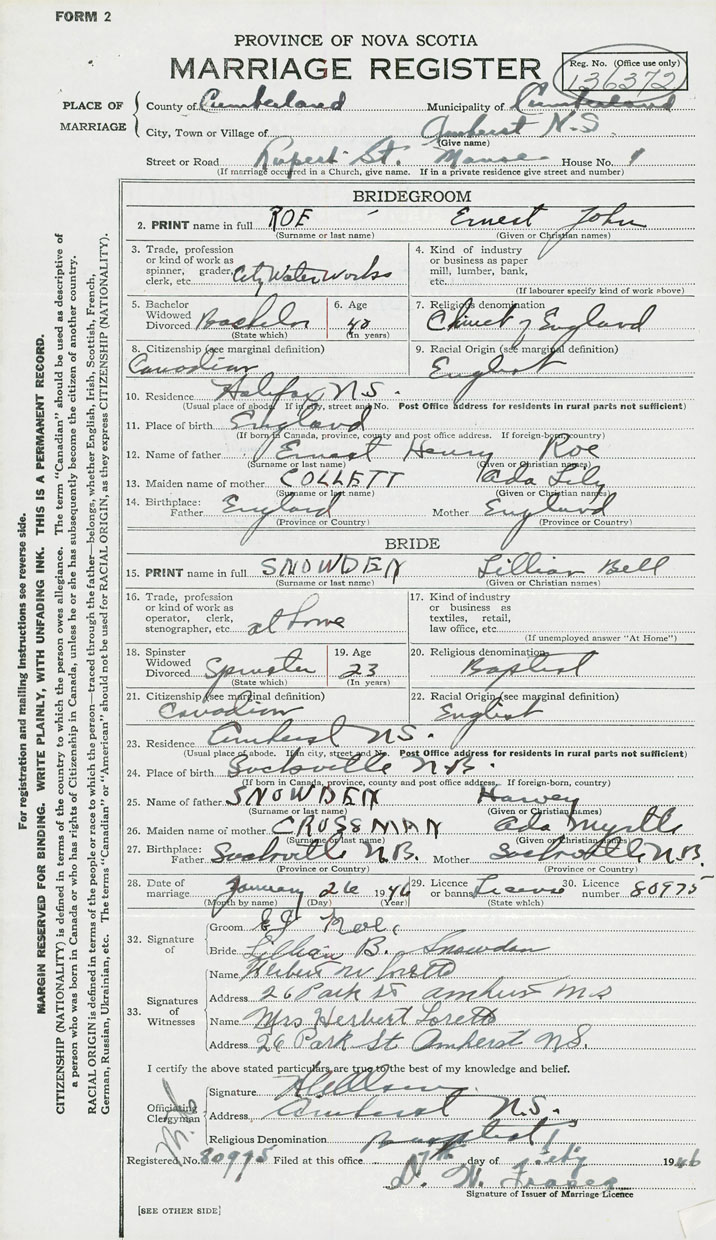 FORM 2
PROVINCE OF NOVA SCOTIA
MARRIAGE REGISTER
Reg. No. (Office use only)
136372
PLACE OF MARRIAGE
County of Cumberland Municipality of Cumberland
City, Town or Village of Amherst N.S.
(Give name)
Street or Road Rupert St. Manse House No. 9
(If marriage occurred in a Church, give name. If in a private residence give street and number)
BRIDEGROOM
2. PRINT name in full ROE Ernest John
(Surname or last name) (Given or Christian names)
3. Trade, profession or kind of work as spinner, grader, clerk, etc. City Water Works
4. Kind of industry or business as paper mill, lumber, bank, etc.
(If labourer specify kind of work above)
5. Bachelor Widowed Divorced Bachelor
(State which)
6. Age
(In years)
7. Religious denomination
Church of England
8. Citizenship (see marginal definition)
Canadian
9. Racial Origin (see marginal definition)
English
10. Residence Halifax N.S.
(Usual place of abode. If in city, street and No. Post Office address for residents in rural parts not sufficient)
11. Place of birth England
(If born in Canada, province, county and post office address. If foreign-born, country)
12. Name of father Ernest Henry Roe
(Surname or last name) (Given or Christian names)
13. Maiden name of mother COLLETT Ada Lily
(Surname or last name) (Given or Christian names)
14. Birthplace: Father England Mother England
(Province or Country) (Province or Country)
BRIDE
15. PRINT name in full SNOWDEN Lillian Bell
(Surname or last name) (Given or Christian names)
16. Trade, profession or kind of work as operator, clerk, stenographer, etc. at home
17. Kind of industry or business as textiles, retail, law office, etc.
(If unemployed answer "At Home")
18. Spinster Widowed Divorced Spinster
(State which)
19. Age
23
(In years)
20. Religious denomination
Baptist
21. Citizenship (see marginal definition)
Canadian
22. Racial Origin (see marginal definition)
English
23. Residence Amherst N.S.
(Usual place of abode. If in city, street and No. Post Office address for residents in rural parts not sufficient)
24. Place of birth Sackville N.B.
(If born in Canada, province, county and post office address. If foreign-born, country)
25. Name of father SNOWDEN Harvey
(Surname or last name) (Given or Christian names)
26. Maiden name of mother CROSSMAN Ada Myrtle
(Surname or last name) (Given or Christian names)
27. Birthplace: Father Sackville N.B. Mother Sackville N.B.
(Province or Country) (Province or Country)
28. Date of marriage January 26 1946
(Month by name) (Day) (Year)
29. Licence or banns License
(State which)
30. Licence number 80975
32. Signature of
Groom E J Roe
Bride Lillian B. Snowdon
33. Signatures of Witnesses
Name Herbert W Lorette
Address 26 Park St Amherst N.S
Name Mrs Herbert Lorette
Address 26 Park St Amherst N.S.
I certify the above stated particulars are true to the best of my knowledge and belief.
Officiating Clergyman
Signature
Address Amherst N.S.
Religious Denomination Baptist
Registered No. 80975 Filed at this office day of 1946
Signature of Issuer of Marriage Licence
[SEE OTHER SIDE]
For registration and mailing instructions see reverse side.
MARGIN RESERVED FOR BINDING. WRITE PLAINLY, WITH UNFADING INK. THIS IS A PERMANENT RECORD.
CITIZENSHIP (NATIONALITY) is defined in terms of the country to which the person owes allegiance. The term "Canadian" should be used as descriptive of
a person who was born in Canada or who has rights of Citizenship in Canada, unless he or she has subsequently become the citizen of another country.
RACIAL ORIGIN is defined in terms of the people or race to which the person—traced through the father—belongs, whether English, Irish, Scottish, French,
German, Russian, Ukrainian, etc. The terms "Canadian" or "American" should not be used for RACIAL ORIGIN, as they express CITIZENSHIP (NATIONALITY).